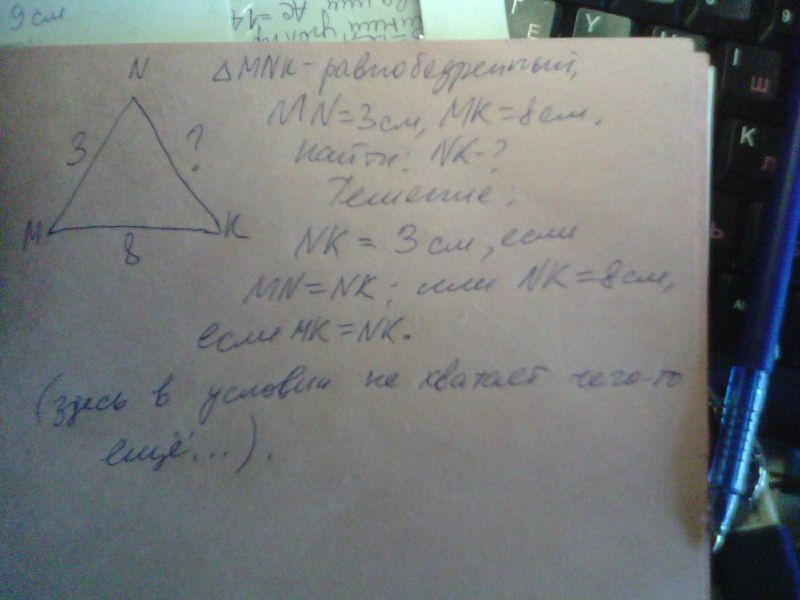 9 см
AC = 14
N
△MNK - равнобедренный,
MN = 3 см, MK = 8 см.
3
?
Найти: NK - ?
Решение:
M
K
8
NK = 3 см, если
MN = NK; или NK = 8 см,
если MK = NK.
(здесь в условии не хватает чего-то
ещё...).
Г
Е
Y
I
Ш
K
Л